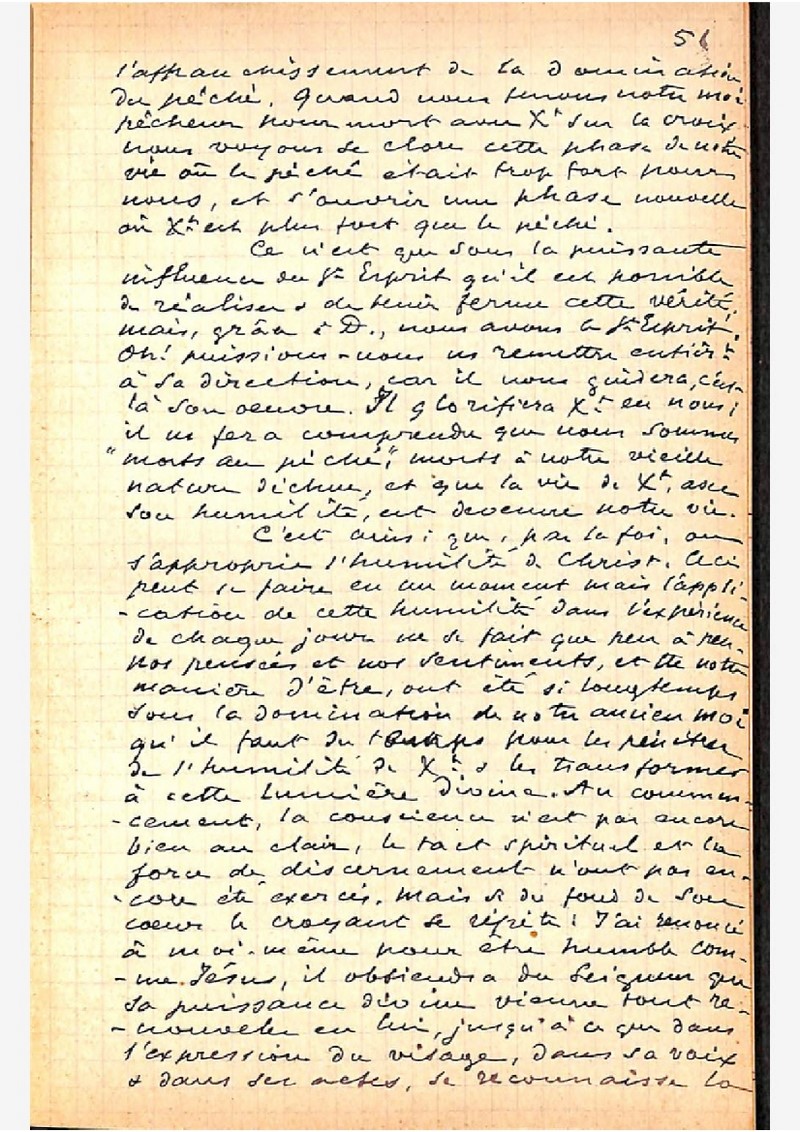 51
l'affranchissement de la domination
du péché. Quand nous tenons notre moi
pécheur pour mort avec Xt sur la croix
nous voyons se clore cette phase de notre
vie où le péché était trop fort pour
nous, et s'ouvrir une phase nouvelle
où Xt est plus fort que le péché.
Ce n'est que sous la puissante
influence du St Esprit qu'il est possible
de réaliser & de tenir ferme cette vérité,
mais, grâce à D., nous avons le St Esprit.
Oh! puissions-nous ns remettre entièrt
à sa direction, car il nous guidera, c'est
là son oeuvre. Il glorifiera Xt en nous;
il ns fera comprendre que nous sommes
"morts au péché", morts à notre vieille
nature déchue, et que la vie de Xt, avec
son humilité, est devenue notre vie.
C'est ainsi que, par la foi, on
s'approprie l'humilité de Christ. Ceci
peut se faire en un moment mais l'appli-
-cation de cette humilité dans l'expérience
de chaque jour ne se fait que peu à peu.
Nos pensées et nos sentiments, et tte notre
manière d'être, ont été si longtemps
sous la domination de notre ancien moi
qu'il faut du temps pour les pénétrer
de l'humilité de Xt & les transformer
à cette lumière divine. Au commen-
-cement, la conscience n'est pas encore
bien au clair, le tact spirituel et la
force de discernement n'ont pas en-
-core été exercés. Mais si du fond de son
coeur le croyant se répète: J'ai renoncé
à moi-même pour être humble com-
-me Jésus, il obtiendra du Seigneur que
sa puissance divine vienne tout re-
-nouveler en lui, jusqu'à ce que dans
l'expression du visage, dans sa voix
& dans ses actes, se reconnaisse la